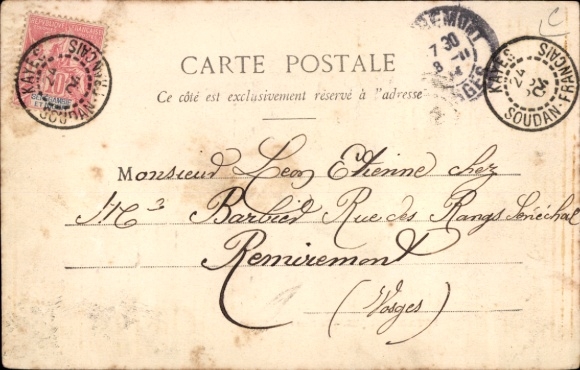 RÉPUBLIQUE FRANÇAISE
10
SÉNÉGAMBIE
ET NIGER
KAYES
SOUDAN-FRANÇAIS
REMIREMONT
7 30
8 -11
VOSGES
KAYES
SOUDAN-FRANÇAIS
C
CARTE POSTALE
Ce côté est exclusivement réservé à l'adresse
Monsieur Leon Etienne chez
M Barbier Rue des Rangs Sénéchal
Remiremont
(Vosges)